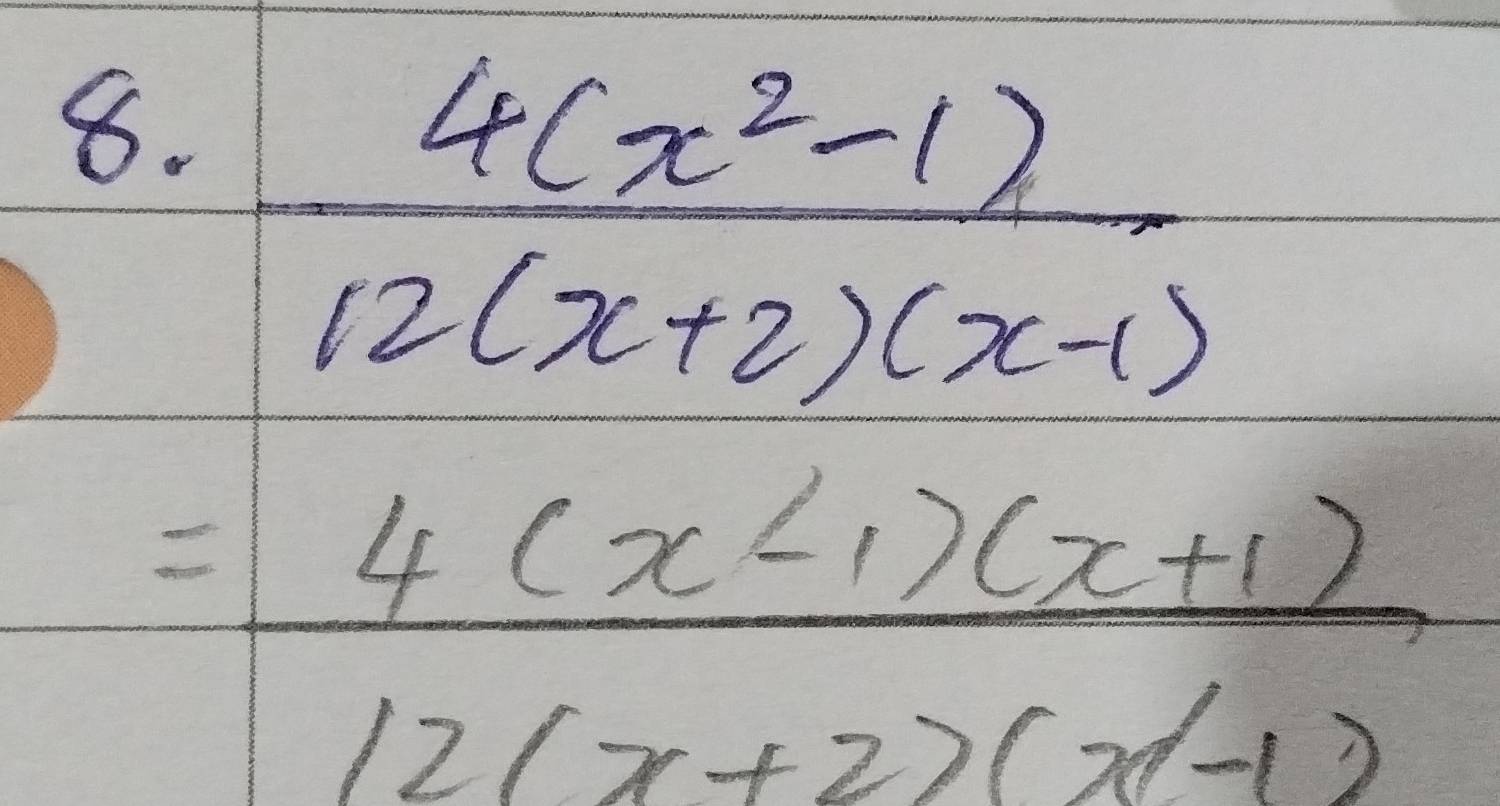 8. 4(x²-1)
12(x+2)(x-1)
= 4(x-1)(x+1)
12(x+2)(x-1)